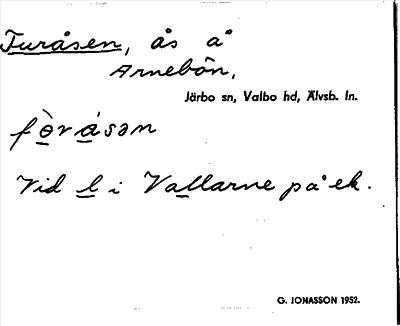 Furåsen, ås å
Arnebön,
Järbo sn, Valbo hd, Älvsb. ln.
fò̱rá̱sən
Vid l̲ i Val̲larne på ek.
G. JONASSON 1952.